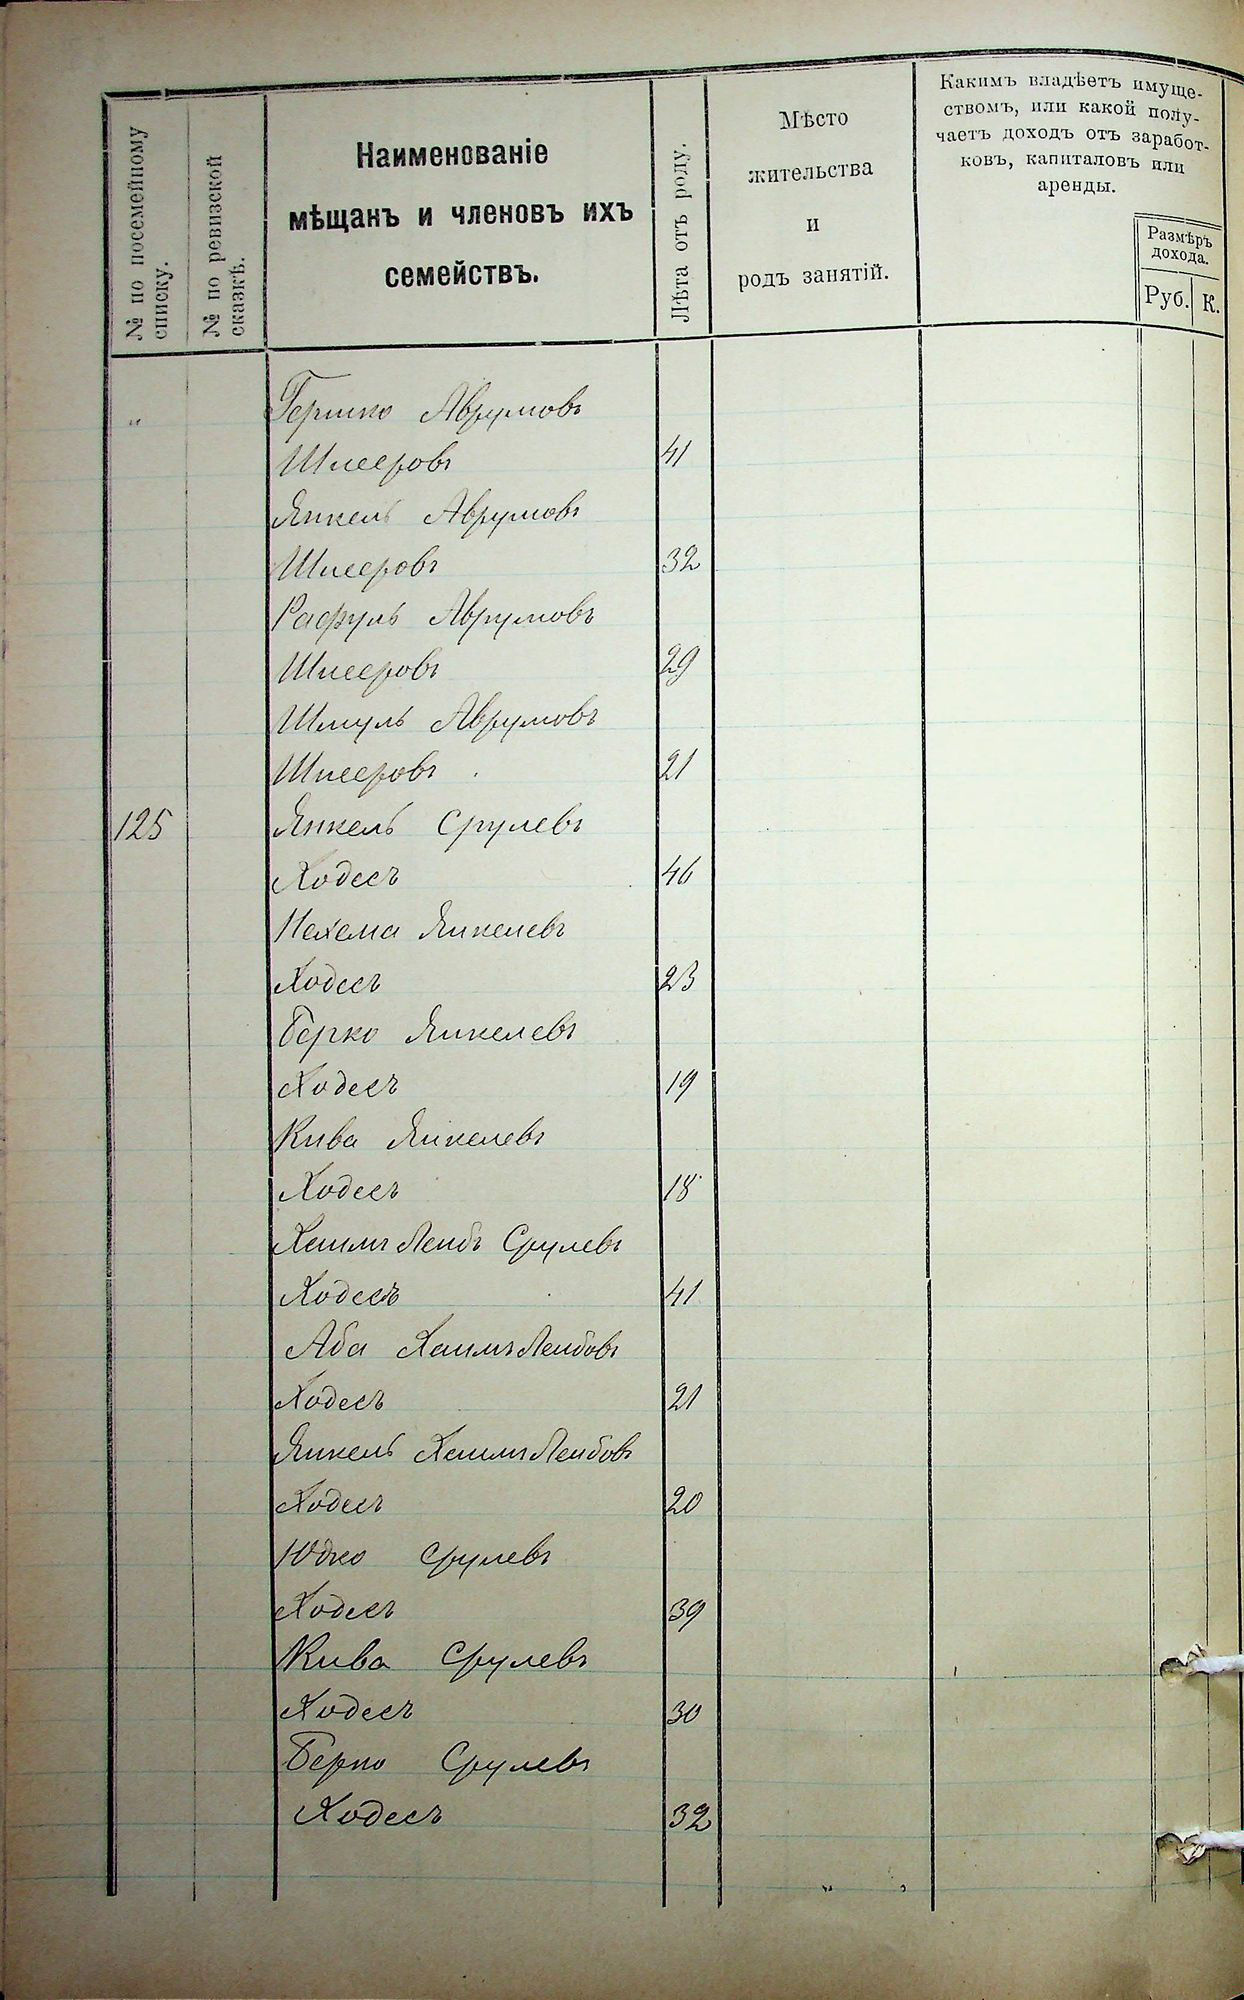 № по посемейному
списку.
№ по ревизской
сказкѣ.
Наименованіе
мѣщанъ и членовъ ихъ
семействъ.
Лѣта отъ роду.
Мѣсто
жительства
и
родъ занятій.
Какимъ владѣетъ имуще-
ствомъ, или какой полу-
чаетъ доходъ отъ заработ-
ковъ, капиталовъ или
аренды.
Размѣръ
дохода.
Руб. К.
" Гершко Аврумовъ
Шнееровъ 41
Янкель Аврумовъ
Шнееровъ 32
Рафуль Аврумовъ
Шнееровъ 29
Шмуль Аврумовъ
Шнееровъ 21
125 Янкель Срулевъ
Ходесъ 46
Нехема Янкелевъ
Ходесъ 23
Берко Янкелевъ
Ходесъ 19
Кива Янкелевъ
Ходесъ 18
Хаимъ Лейбъ Срулевъ
Ходесъ 41
Аба Хаимъ Лейбовъ
Ходесъ 21
Янкель Хаимъ Лейбовъ
Ходесъ 20
Юдко Срулевъ
Ходесъ 39
Кива Срулевъ
Ходесъ 30
Берко Срулевъ
Ходесъ 32